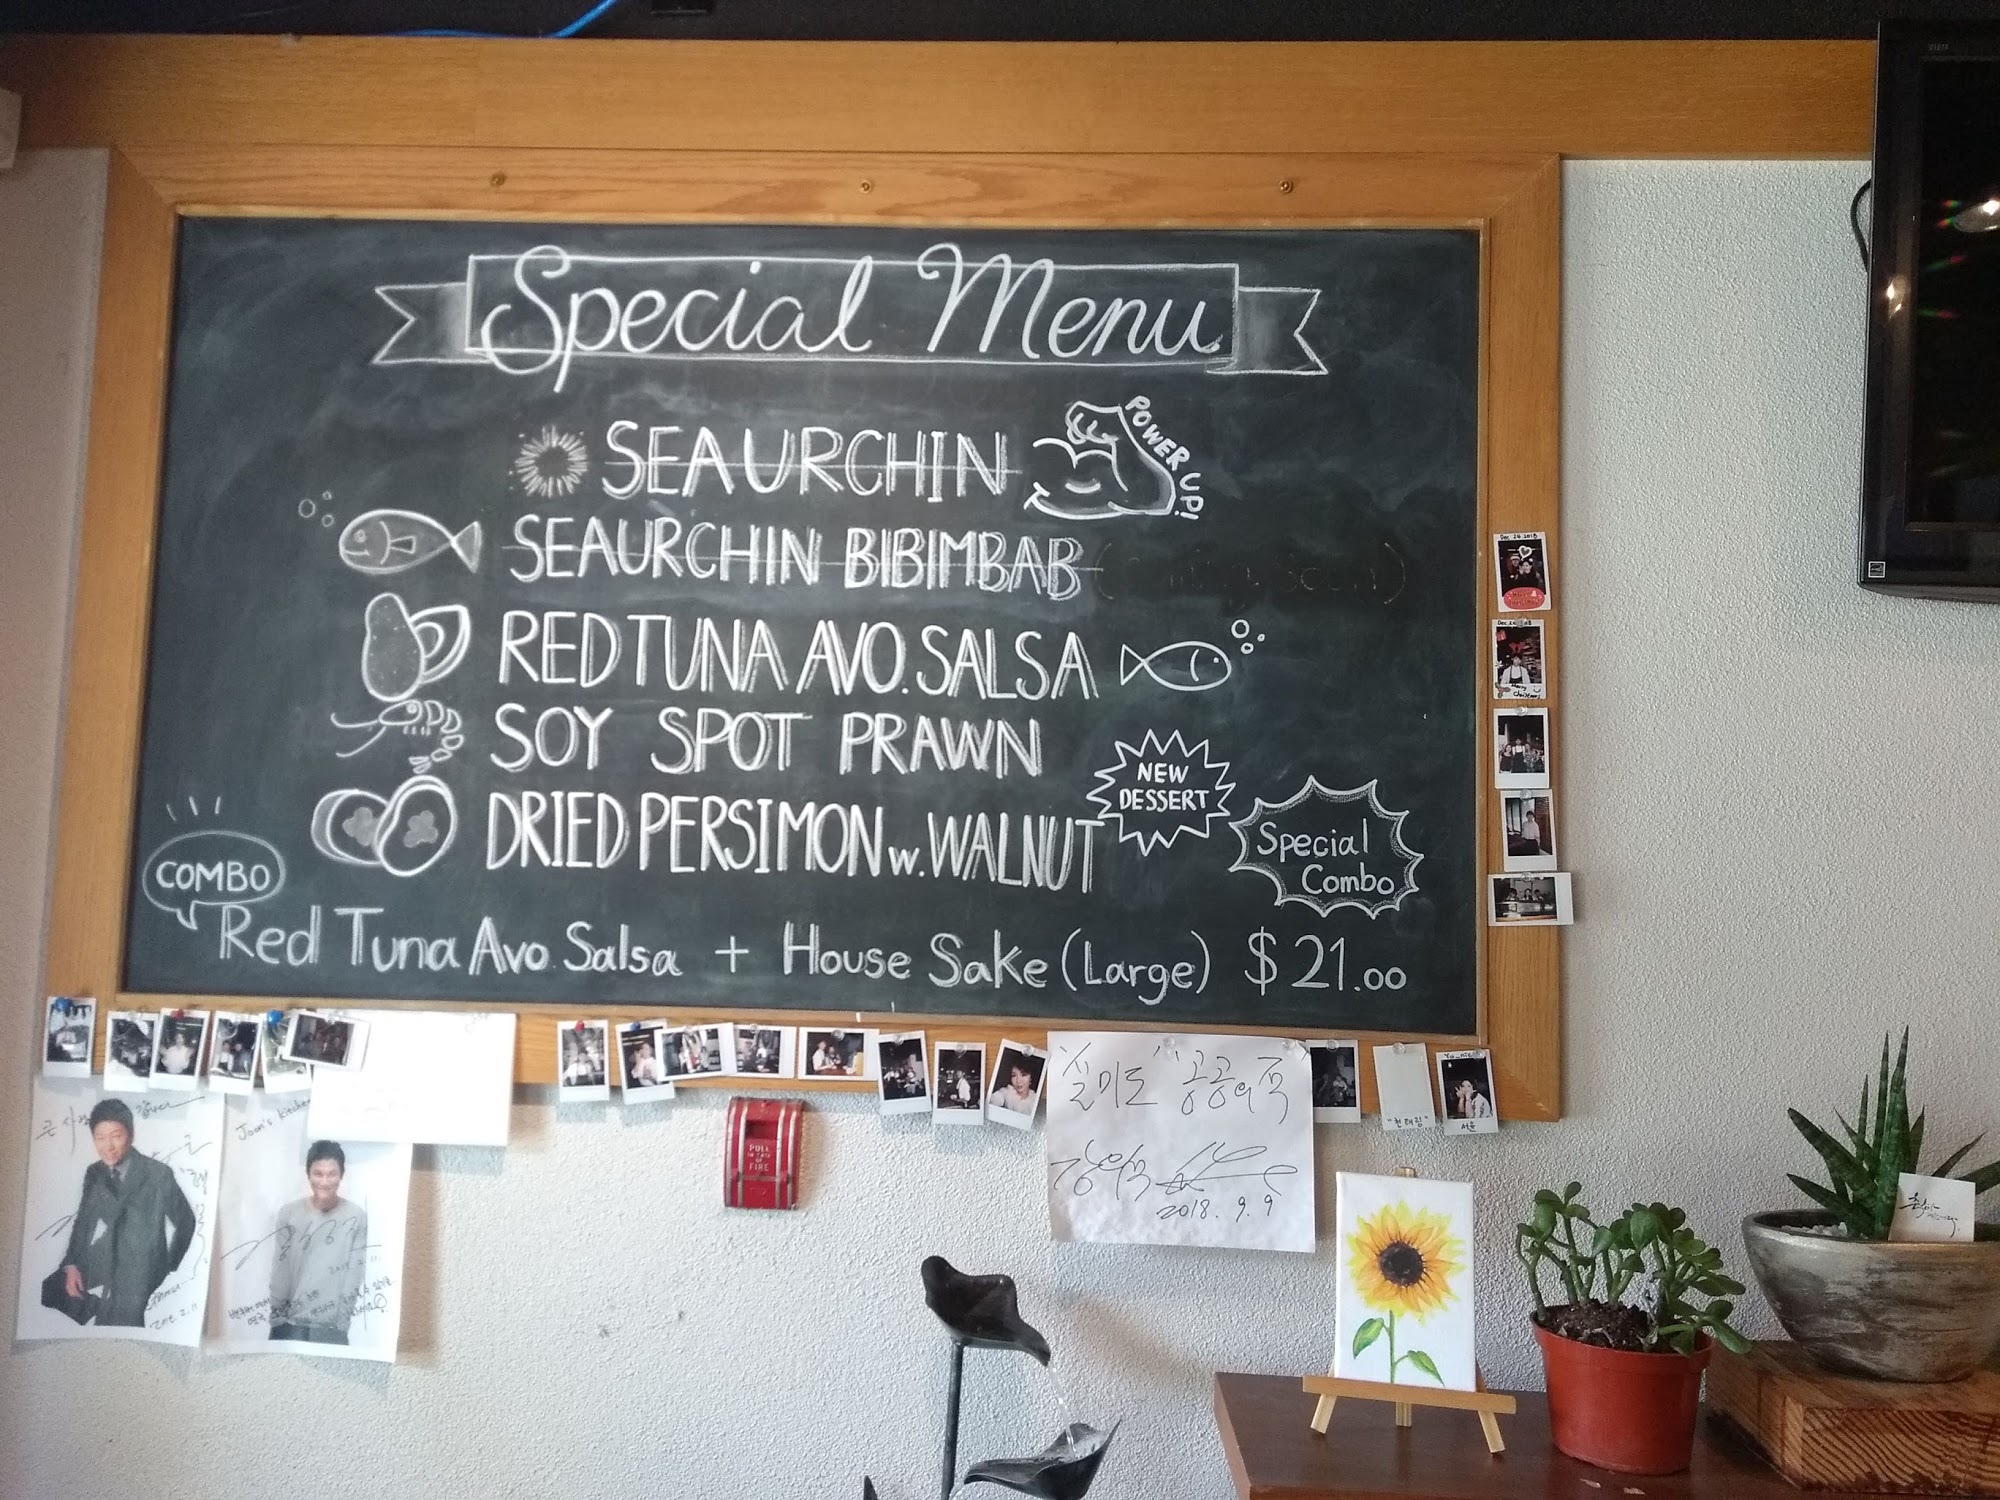 Special Menu
SEAURCHIN
POWER UP!
SEAURCHIN BIBIMBAB (Coming Soon)
RED TUNA AVO. SALSA
SOY SPOT PRAWN
DRIED PERSIMON w. WALNUT
NEW
DESSERT
Special
Combo
COMBO
Red Tuna Avo. Salsa + House Sake (Large) $21.00
Dec 24 2018
Merry
Christmas
실미도 공공의 적
2018. 9. 9
PULL
IN CASE
OF
FIRE
Joon's kitchen
"천태랑"
서윤